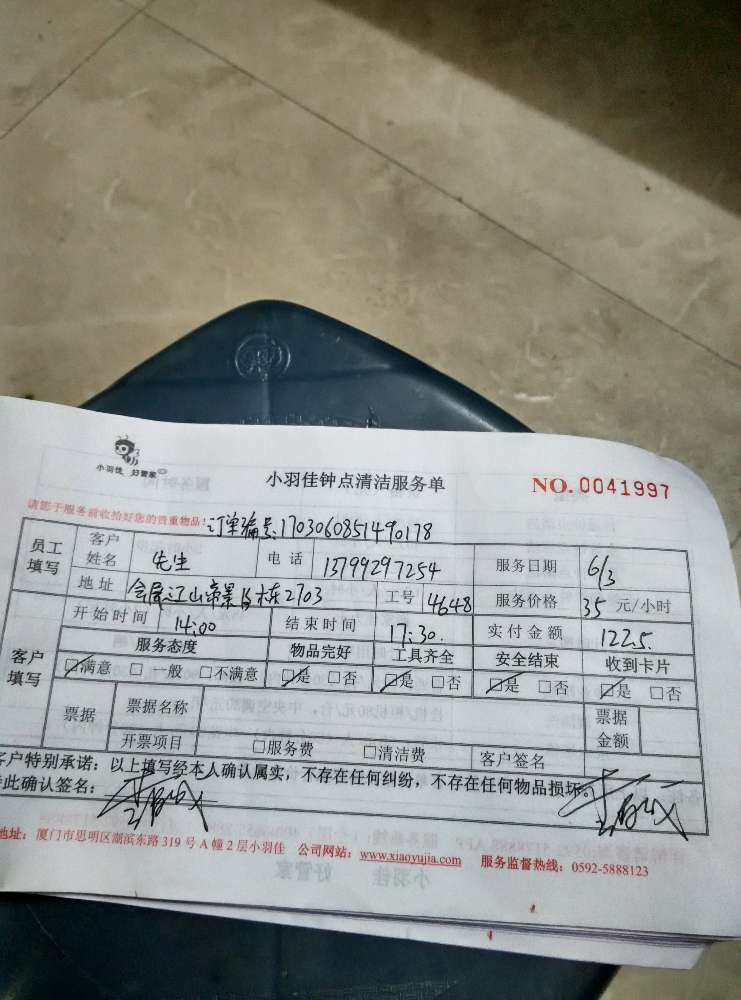 小羽佳 好管家
小羽佳钟点清洁服务单
NO.0041997
请您于服务前收拾好您的贵重物品!订单编号:1703060851490178
员工填写 客户姓名 先生 电话 13799297254 服务日期 6/3
地址 江山帝景 栋2703 工号 4648 服务价格 35 元/小时
客户填写 开始时间 14:00 结束时间 17:30. 实付金额 122.5.
服务态度 物品完好 工具齐全 安全结束 收到卡片
☑满意 □一般 □不满意 ☑是 □否 ☑是 □否 ☑是 □否 ☑是 □否
票据 票据名称 票据金额
开票项目 □服务费 □清洁费 客户签名
客户特别承诺:以上填写经本人确认属实,不存在任何纠纷,不存在任何物品损坏。
此确认签名:
地址:厦门市思明区湖滨东路319号A幢2层小羽佳 公司网站:www.xiaoyujia.com 服务监督热线:0592-5888123